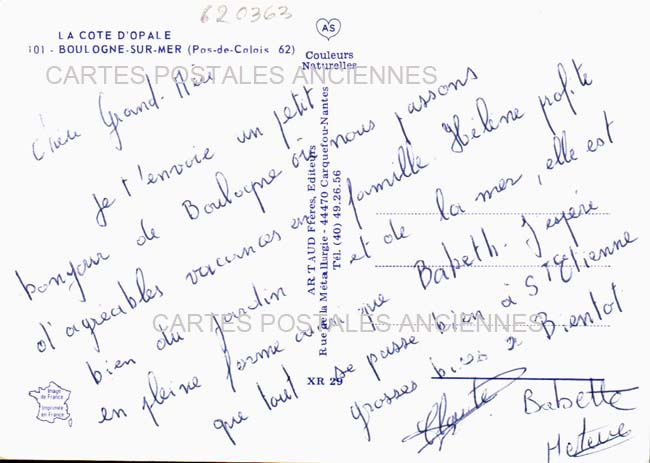 620363
LA COTE D'OPALE
101 - BOULOGNE-SUR-MER (Pas-de-Calais 62)
AS
Couleurs
Naturelles
CARTES POSTALES ANCIENNES
Grand-
Je t'envoie un petit
bonjour de Boulogne où nous passons
d'agréables vacances en famille. Hélène profite
bien du jardin et de la mer, elle est
en pleine forme ainsi que Babeth. J'espère
que tout se passe bien à St Etienne
grosses bises à Bientot
Babette
ARTAUD Frères, Editeurs
Rue de la Métallurgie - 44470 Carquefou-Nantes
Tél. (40) 49.26.56
CARTES POSTALES ANCIENNES
XR 29
Image
de France
Imprimée
en France